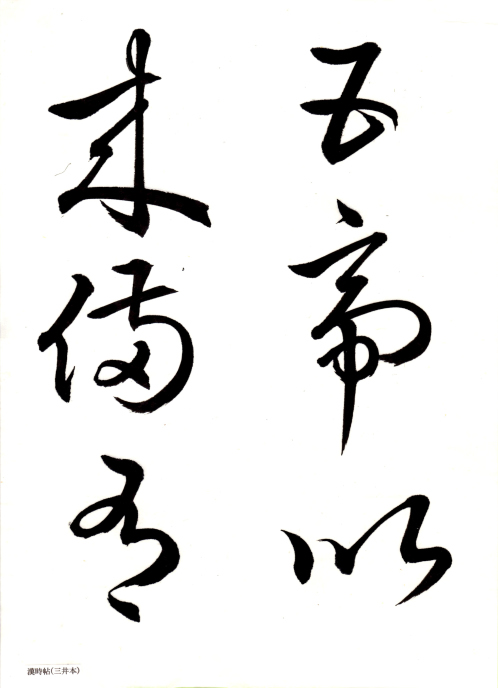 五帝以
来備有
漢時帖(三井本)